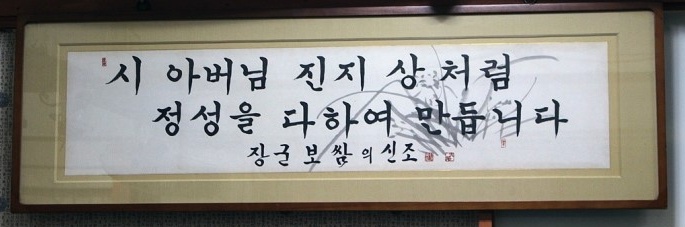 시 아버님 진지 상 처럼
정성을 다하여 만듭니다
장군 보쌈의 신조